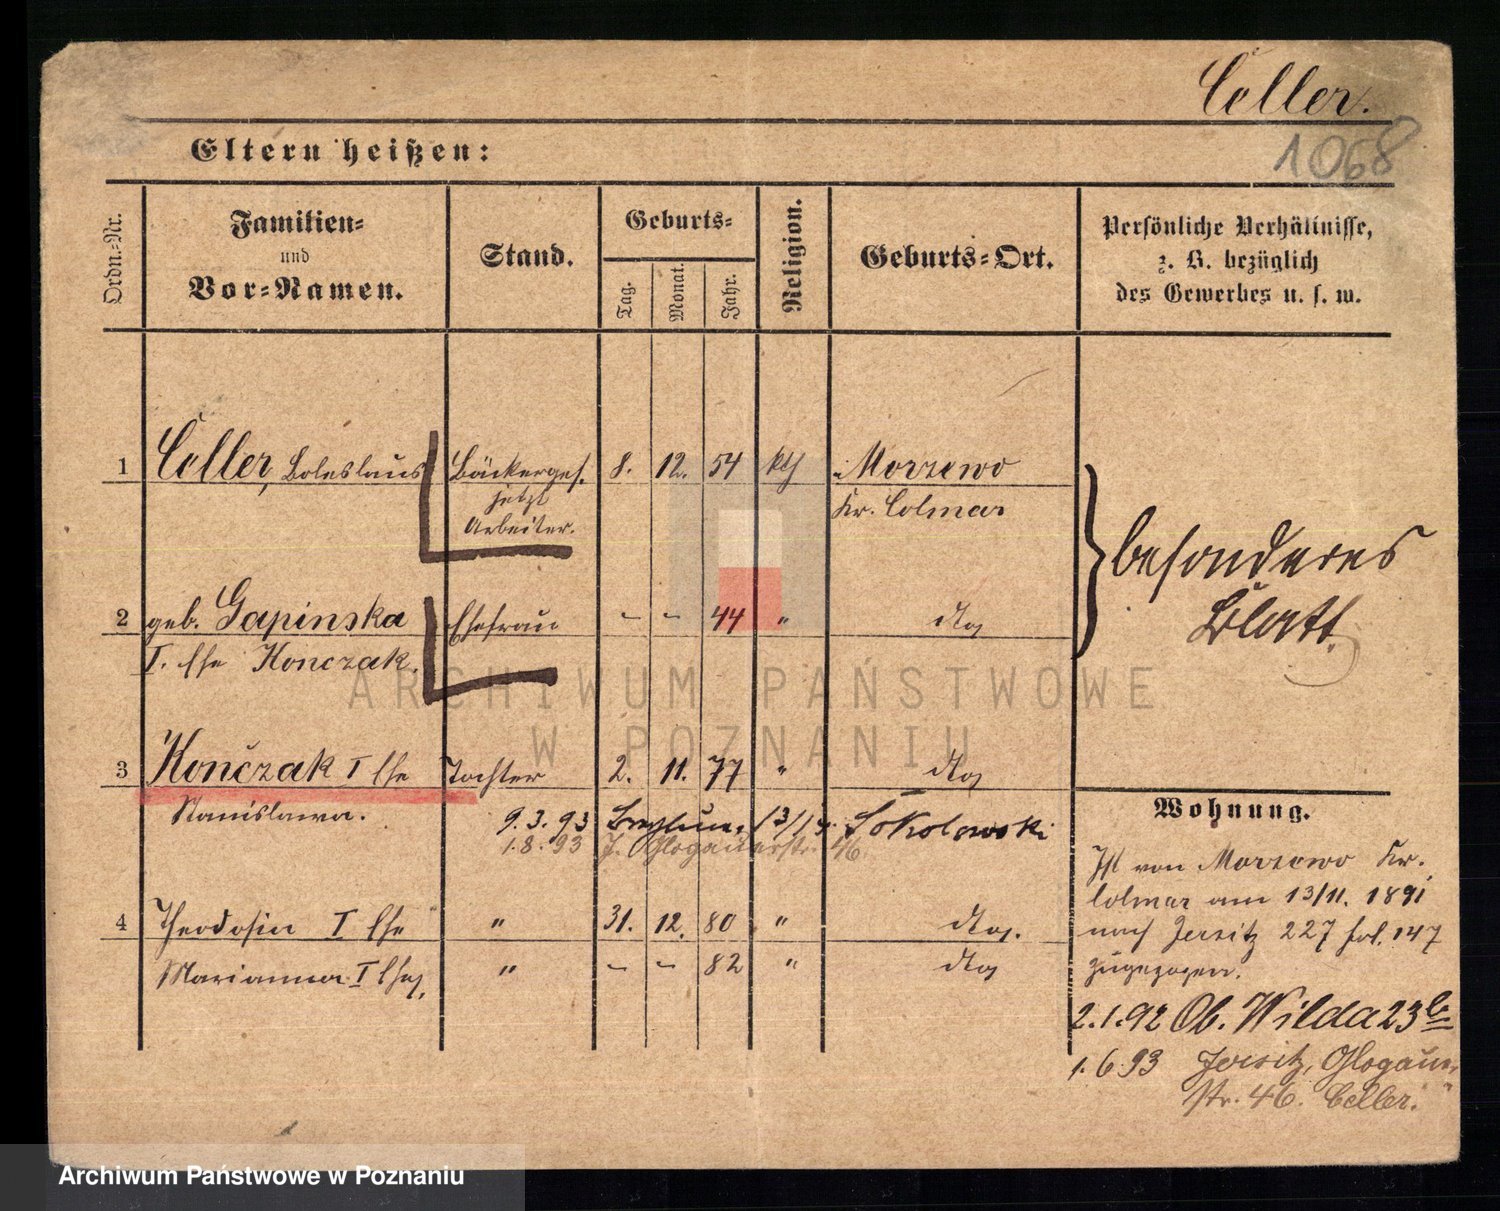 Celler.
1068
Eltern heißen:
Ordn.-Nr.
Familien-
und
Vor-Namen.
Stand.
Geburts-
Tag.
Monat.
Jahr.
Religion.
Geburts-Ort.
Persönliche Verhältnisse,
z. B. bezüglich
des Gewerbes u. s. w.
1 Celler, Boleslaus Bäckerges. 8. 12. 54 kth Morzewo
jetzt Kr. Colmar
Arbeiter.
besonderes
Blatt.
2 geb. Gapinska Ehefrau - - 44 " dto
I. Ehe Konczak.
ARCHIWUM PAŃSTWOWE
W POZNANIU
3 Kończak I Ehe Tochter 2. 11. 77 " dto
Stanislawa.
9.3.93 Sokolowski
1.8.93 J. Glogauerstr. 46.
4 Theodosia I Ehe " 31. 12. 80 " dto.
Marianna I Ehe, " - - 82 " dto
Wohnung.
Ist von Morzewo Kr.
Colmar am 13/11. 1891
nach Jersitz 227 fol. 147
zugezogen.
2.1.92 Ob. Wilda 23 b
1.6.93 Jersitz, Glogauer
str. 46. Celler.
Archiwum Państwowe w Poznaniu